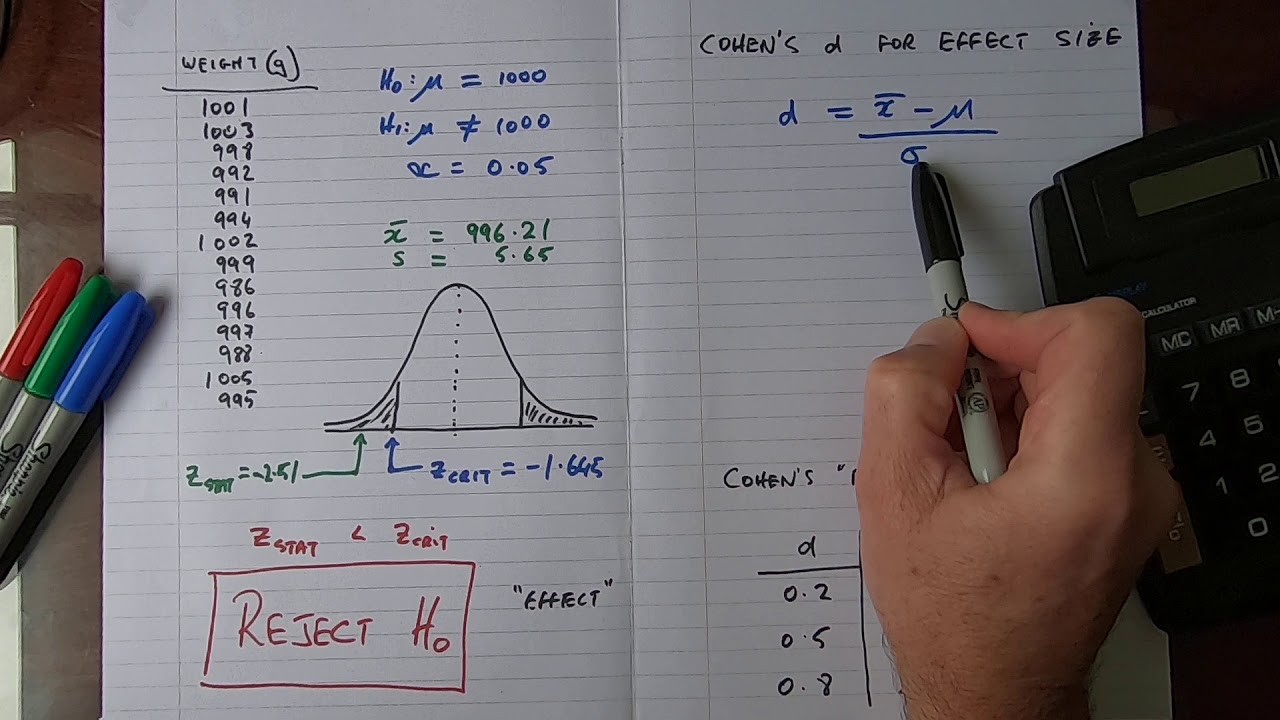 WEIGHT (g)
1001
1003
998
992
991
994
1002
999
986
996
997
988
1005
995
H₀: μ = 1000
H₁: μ ≠ 1000
α = 0.05
x̄ = 996.21
s = 5.65
Z_STAT = -2.51
Z_CRIT = -1.645
Z_STAT < Z_CRIT
REJECT H₀
"EFFECT"
COHEN'S d FOR EFFECT SIZE
d = x̄ - μ
σ
COHEN'S "
d
0.2
0.5
0.8
CALCULATOR
MC MR M-
7 8
4 5
1 2
0
Sharpie